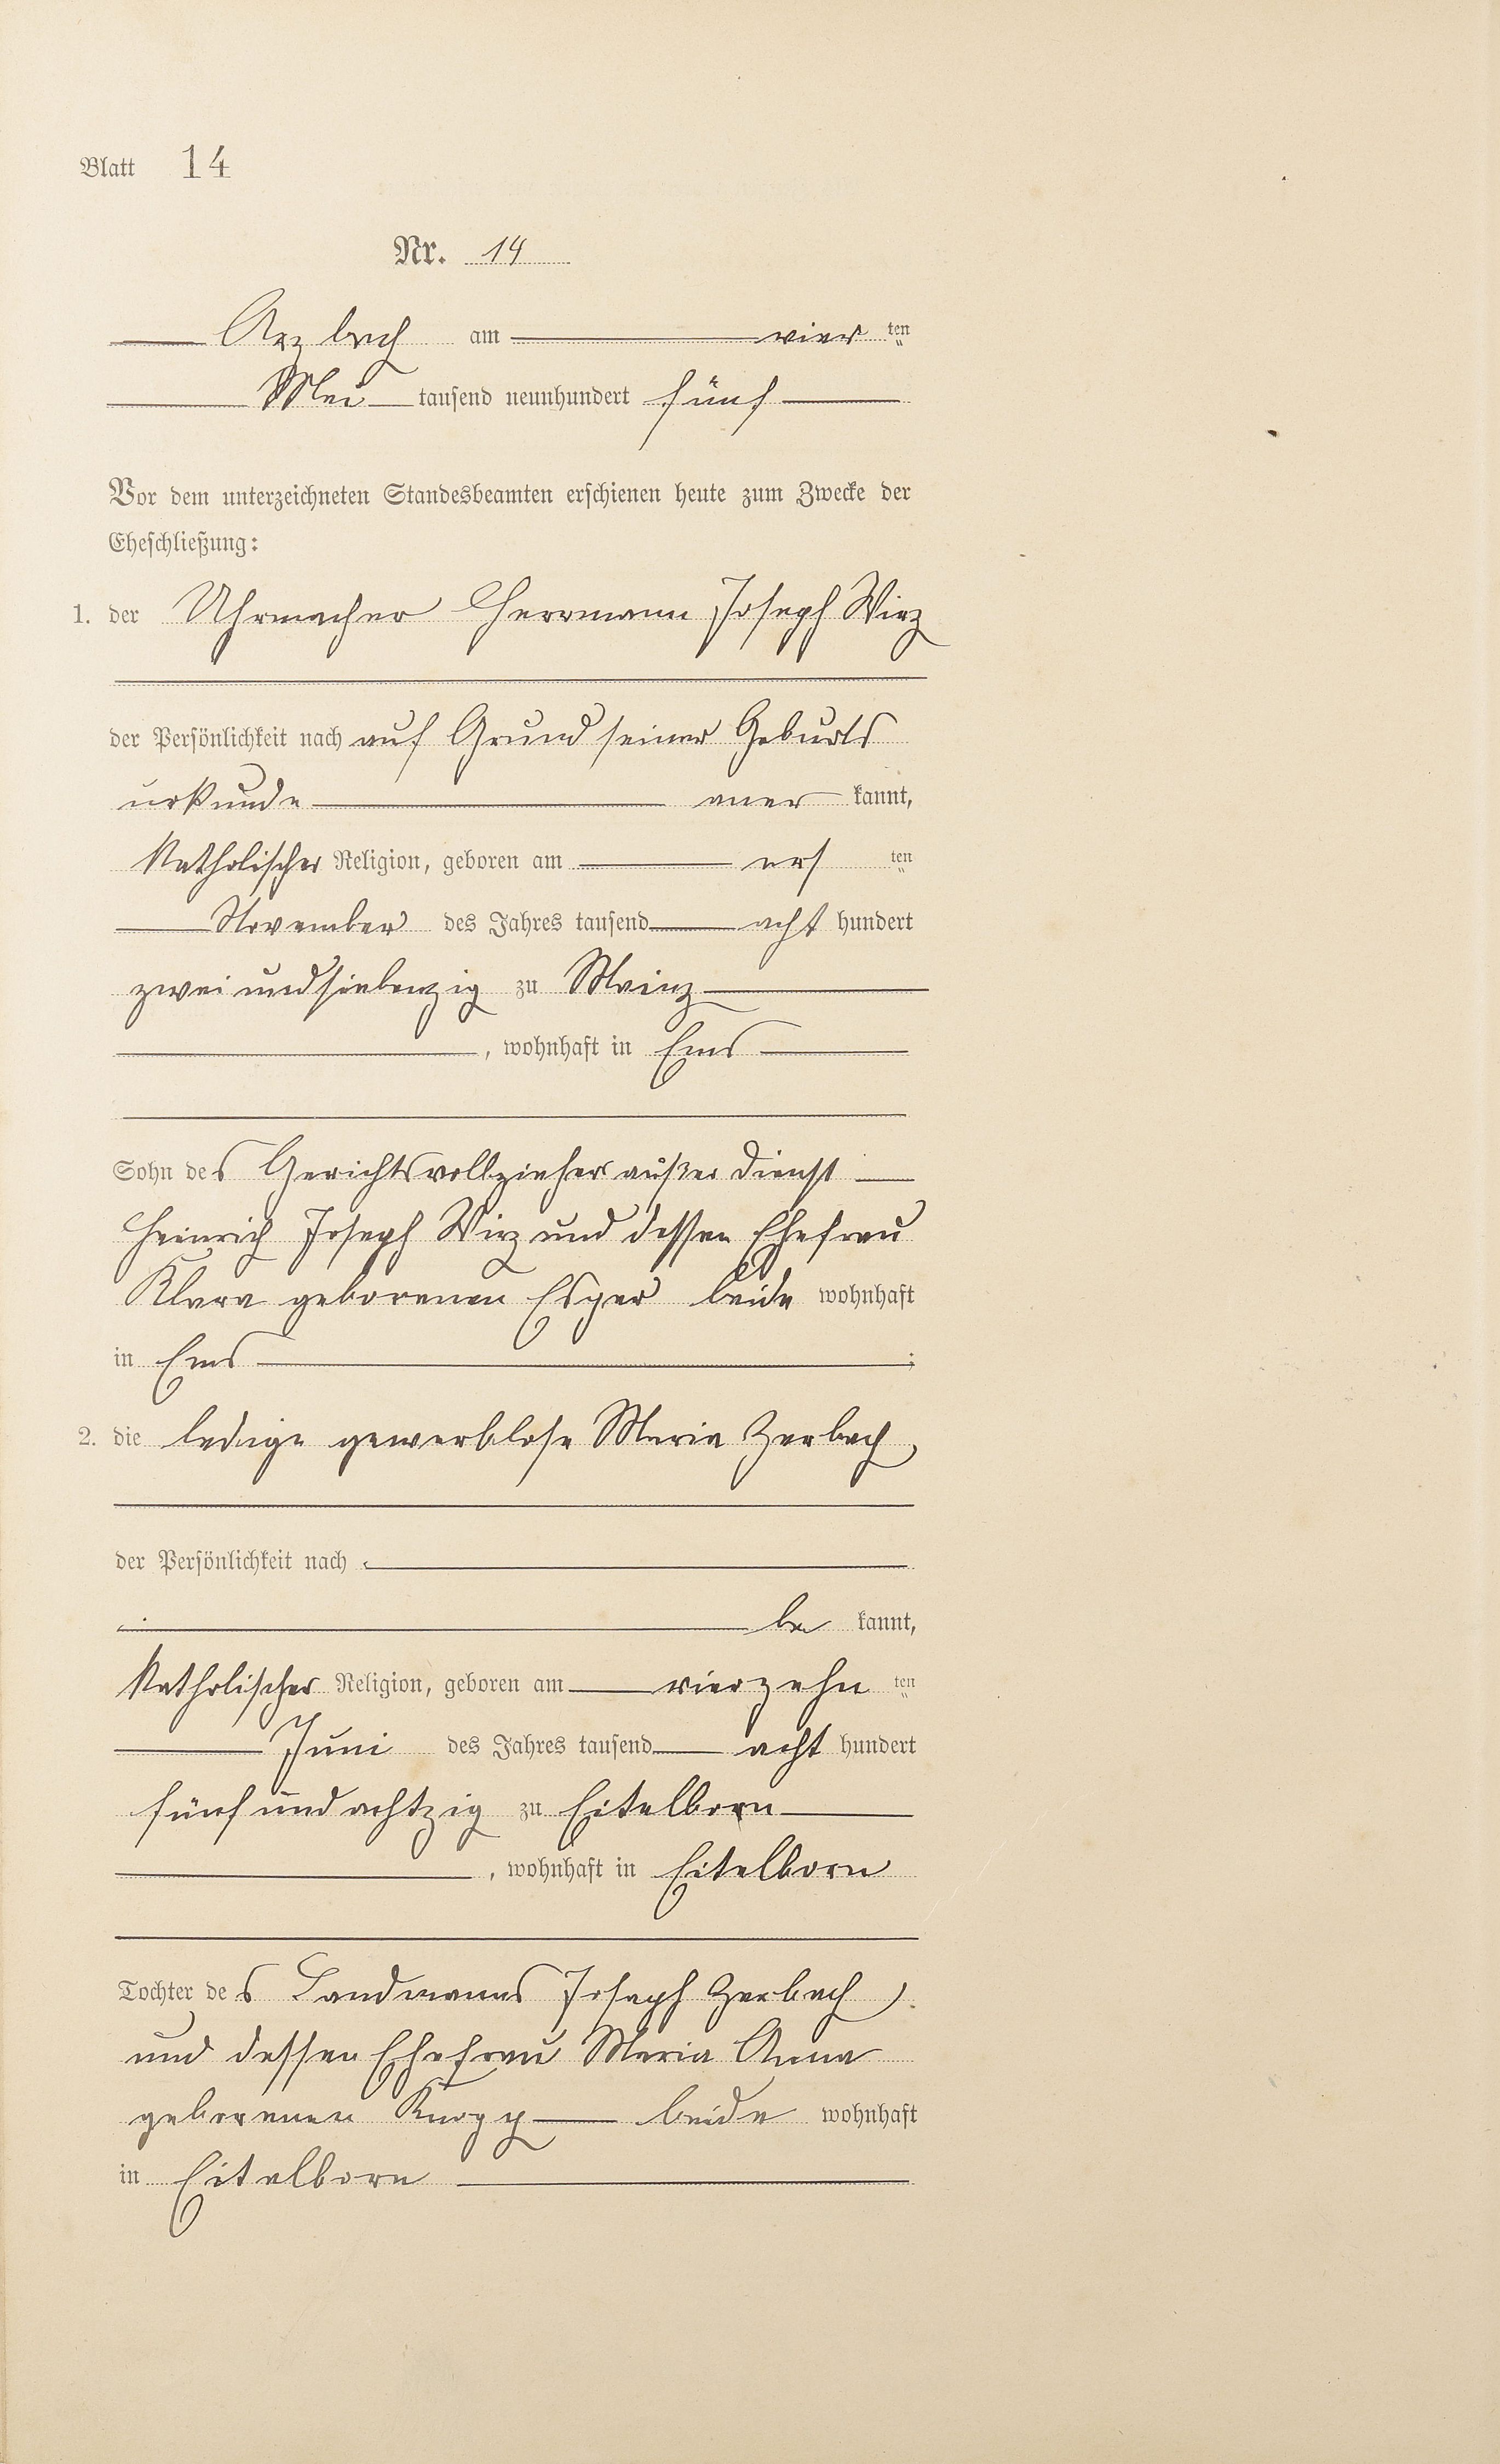 Blatt 14
Nr. 14
Arzbach am vier ten
Mai tausend neunhundert fünf
Vor dem unterzeichneten Standesbeamten erschienen heute zum Zwecke der
Eheschließung:
1. der Uhrmacher Herrmann Joseph Wirz
der Persönlichkeit nach auf Grund seiner Geburts
urkunde aner kannt,
Katholischer Religion, geboren am ers ten
November des Jahres tausend acht hundert
zwei und siebenzig zu Mainz
, wohnhaft in Ems
Sohn des Gerichtsvollzieher außer Dienst
Heinrich Joseph Wirz und dessen Ehefrau
Klara geborenen Esper beide wohnhaft
in Ems ;
2. die ledige gewerblose Maria Zerbach
der Persönlichkeit nach
be kannt,
Katholischer Religion, geboren am vierzehn ten
Juni des Jahres tausend acht hundert
fünf und achtzig zu Eitelborn
, wohnhaft in Eitelborn
Tochter des Landmanns Joseph Zerbach
und dessen Ehefrau Maria Anna
geborenen Knopp beide wohnhaft
in Eitelborn